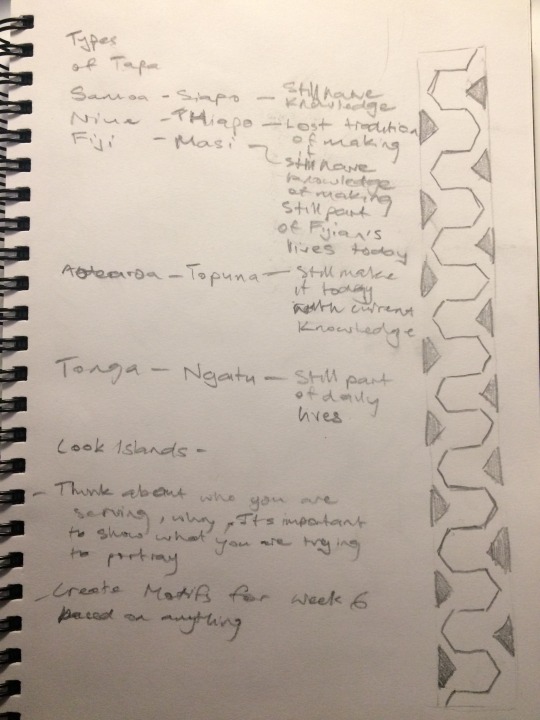 Types
of Tapa
Samoa - Siapo - Still have
knowledge
Niue - Hiapo - Lost tradition
of making
it
Fiji - Masi - Still have
knowledge
of making
Still part
of Fijian's
lives today
Aotearoa - Topuna - Still make
it today
with current
knowledge
Tonga - Ngatu - Still part
of daily
lives
Cook Islands -
- Think about who you are
serving, why, It's important
to show what you are trying
to portray
- Create Motifs for week 6
based on anything